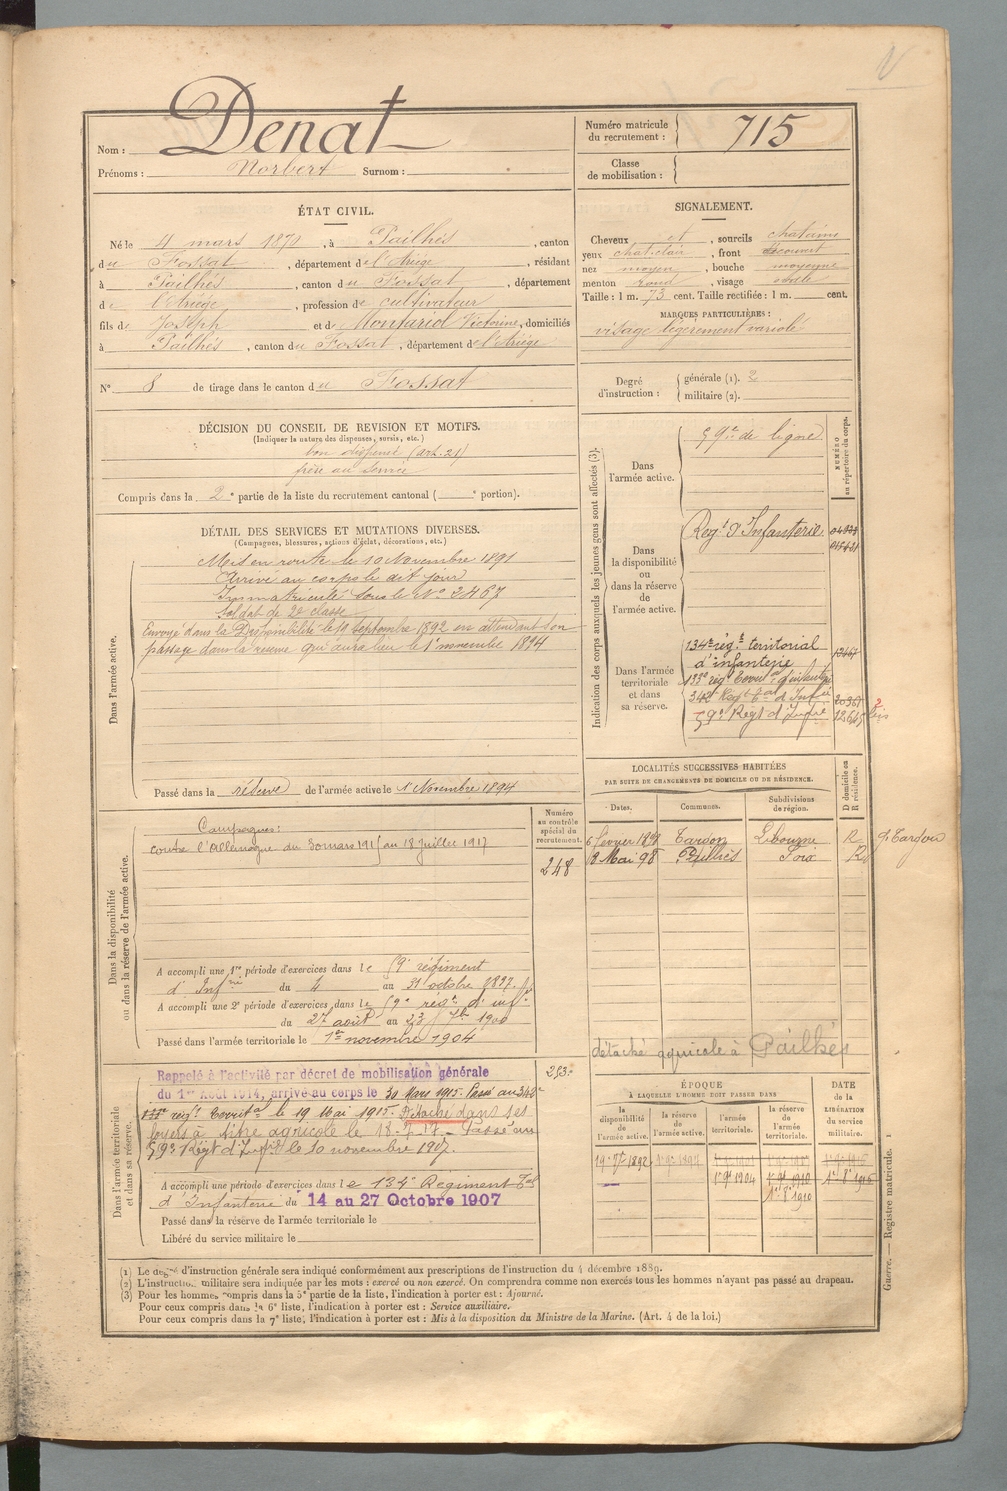 Nom : Denat
Prénoms : Norbert Surnom :
Numéro matricule du recrutement : 715
Classe de mobilisation :
ÉTAT CIVIL.
Né le 4 mars 1870, à Pailhés, canton
du Fossat, département de l'Ariège, résidant
à Pailhés, canton du Fossat, département
de l'Ariège, profession de cultivateur
fils de Joseph et de Monturiol Victorine, domiciliés
à Pailhés, canton du Fossat, département de l'Ariège
N° 8 de tirage dans le canton du Fossat
SIGNALEMENT.
Cheveux et, sourcils chatains
yeux chat. clair, front découvert
nez moyen, bouche moyenne
menton rond, visage ovale
Taille : 1 m. 73 cent. Taille rectifiée : 1 m. cent.
MARQUES PARTICULIÈRES :
visage légèrement variolé
Degré d'instruction : générale (1). 2
militaire (2).
DÉCISION DU CONSEIL DE REVISION ET MOTIFS.
(Indiquer la nature des dispenses, sursis, etc.)
bon dispensé (art. 21)
frère au service
Compris dans la 2e partie de la liste du recrutement cantonal ( e portion).
DÉTAIL DES SERVICES ET MUTATIONS DIVERSES.
(Campagnes, blessures, actions d'éclat, décorations, etc.)
Dans l'armée active.
Mis en route le 10 Novembre 1891
Arrivé au corps le dit jour
Immatriculé sous le N° 2467
Soldat de 2e classe
Envoyé dans la Disponibilité le 19 septembre 1892 en attendant son
passage dans la réserve qui aura lieu le 1er novembre 1894
Passé dans la réserve de l'armée active le 1er Novembre 1894
Indication des corps auxquels les jeunes gens sont affectés (3).
NUMÉRO au répertoire du corps.
Dans l'armée active.
59e de ligne
Dans la disponibilité ou dans la réserve de l'armée active.
Regt d'Infanterie.
Dans l'armée territoriale et dans sa réserve.
134e régt territorial
d'infanterie
133e régt territal d'infanterie
342e Regt d'Infie
59e Régt d'Infie
LOCALITÉS SUCCESSIVES HABITÉES
PAR SUITE DE CHANGEMENTS DE DOMICILE OU DE RÉSIDENCE.
Dates. Communes. Subdivisions de région. D domicile ou R résidence.
Libourne R
8 Mai 98 Pailhés Foix R
Dans la disponibilité ou dans la réserve de l'armée active.
Numéro au contrôle spécial du recrutement.
248
Campagnes :
contre l'Allemagne du 30 mars 1915 au 18 juillet 1917
A accompli une 1re période d'exercices dans le 59e régiment
d'Infrie du 4 au 31 octobre 1897.
A accompli une 2e période d'exercices dans le 59e régt d'inf
du 27 août au 23 7bre 1900
Passé dans l'armée territoriale le 1er novembre 1904
détaché agricole à Pailhés
Dans l'armée territoriale et dans sa réserve.
253
Rappelé à l'activité par décret de mobilisation générale
du 1er Août 1914, arrivé au corps le 30 Mars 1915. Passé au 342e
133e régt territal le 19 Mai 1915. Détaché dans ses
foyers à titre agricole le 18-7-17. Passé au
59e Régt d'Infie le 30 novembre 1907.
A accompli une période d'exercices dans le 134e Regiment Tal
d'Infanterie du 14 au 27 Octobre 1907
Passé dans la réserve de l'armée territoriale le
Libéré du service militaire le
ÉPOQUE
À LAQUELLE L'HOMME DOIT PASSER DANS
la disponibilité de l'armée active. la réserve de l'armée active. l'armée territoriale. la réserve de l'armée territoriale.
DATE de la LIBÉRATION du service militaire.
19 7bre 1892
1er 9bre 1904 1er 9bre 1910
(1) Le degré d'instruction générale sera indiqué conformément aux prescriptions de l'instruction du 4 décembre 1889.
(2) L'instruction militaire sera indiquée par les mots : exercé ou non exercé. On comprendra comme non exercés tous les hommes n'ayant pas passé au drapeau.
(3) Pour les hommes compris dans la 5e partie de la liste, l'indication à porter est : Ajourné.
Pour ceux compris dans la 6e liste, l'indication à porter est : Service auxiliaire.
Pour ceux compris dans la 7e liste, l'indication à porter est : Mis à la disposition du Ministre de la Marine. (Art. 4 de la loi.)
Guerre. — Registre matricule. 1